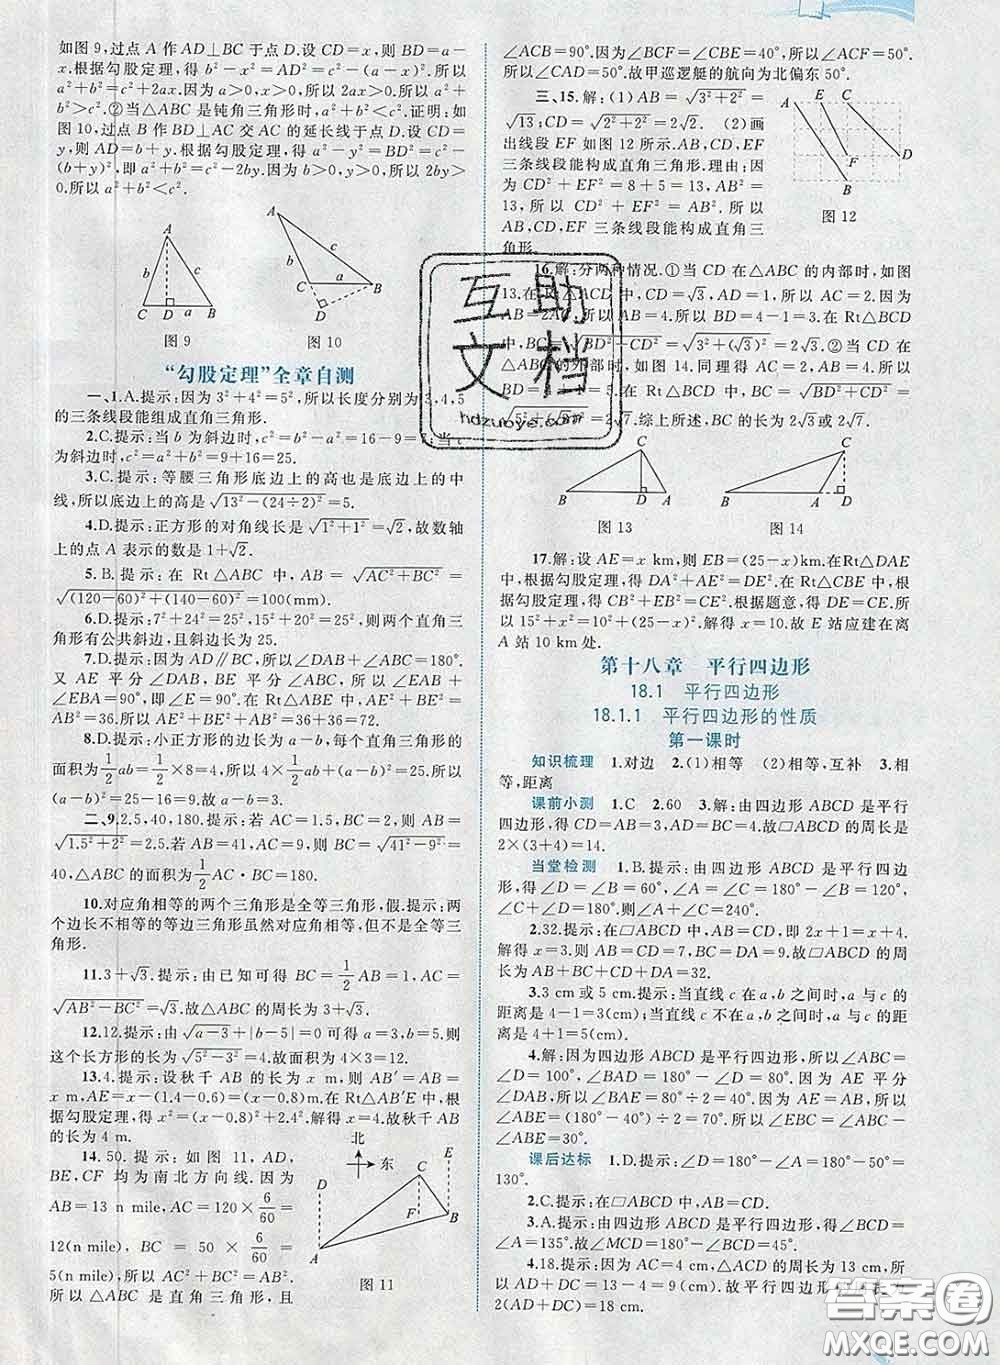 如图 9,过点 A 作 AD⊥BC 于点 D.设 CD=x,则 BD=a-
x.根据勾股定理,得 b²-x²=AD²=c²-(a-x)².所以
a²+b²=c²+2ax.因为 a>0,x>0,所以 2ax>0.所以 a²+
b²>c².②当△ABC 是钝角三角形时,a²+b²<c².证明:如
图 10,过点 B 作 BD⊥AC 交 AC 的延长线于点 D.设 CD=
y,则 AD=b+y.根据勾股定理,得 a²-y²=BD²=c²-
(b+y)²,即 a²+b²=c²-2by.因为 b>0,y>0,所以 2by>
0.所以 a²+b²<c².
A
b
c
C
D
a
B
图 9
A
c
b
a
C
B
D
图 10
“勾股定理”全章自测
一、1.A.提示:因为 3²+4²=5²,所以长度分别为 3,4,5
的三条线段能组成直角三角形.
2.C.提示:当 b 为斜边时,c²=b²-a²=16-9=7;当 c
为斜边时,c²=a²+b²=9+16=25.
3.C.提示:等腰三角形底边上的高也是底边上的中
线,所以底边上的高是√(13²-(24÷2)²)=5.
4.D.提示:正方形的对角线长是√(1²+1²)=√2,故数轴
上的点 A 表示的数是 1+√2.
5.B.提示:在 Rt△ABC 中,AB=√(AC²+BC²)=
√((120-60)²+(140-60)²)=100(mm).
6.D.提示:7²+24²=25²,15²+20²=25²,则两个直角三
角形有公共斜边,且斜边长为 25.
7.D.提示:因为 AD∥BC,所以∠DAB+∠ABC=180°.
又 AE 平分∠DAB,BE 平分∠ABC,所以∠EAB+
∠EBA=90°,所以∠AEB=90°.因为 AB=6,所以 AE²+BE²=
AB²=36.所以 AE²+BE²+AB²=36+36=72.
8.D.提示:小正方形的边长为 a-b,每个直角三角形的
面积为½ab=½×8=4,所以 4×½ab+(a-b)²=25.所以
(a-b)²=25-16=9.故 a-b=3.
二、9.2.5,40,180.提示:若 AC=1.5,BC=2,则 AB=
√(1.5²+2²)=2.5.若 AB=41,AC=9,则 BC=√(41²-9²)=
40,△ABC 的面积为½AC·BC=180.
10.对应角相等的两个三角形是全等三角形,假.提示:两
个边长不相等的等边三角形虽然对应角相等,但不是全等三
角形.
11.3+√3.提示:由已知可得 BC=½AB=1,AC=
√(AB²-BC²)=√3.故△ABC 的周长为 3+√3.
12.12.提示:由√(a-3)+|b-5|=0 可得 a=3,b=5,则
这个长方形的长为√(5²-3²)=4.故面积为 3×4=12.
13.4.提示:设秋千 AB 的长为 x m,则 AB′=AB=
x m,AE=x-(1.4-0.6)=(x-0.8)m.在 Rt△AB′E 中,
根据勾股定理,得 x²=(x-0.8)²+2.4².解得 x=4.故秋千 AB
的长为 4 m.
14.50. 提示:如图 11,AD,
BE,CF 均为南北方向线. 因为
AB=13 n mile,AC=120×6/60=
12(n mile),BC=50×6/60=
5(n mile),所以 AC²+BC²=AB².
所以△ABC 是直角三角形,且
北
东
D
E
C
F
B
A
图 11
∠ACB=90°.因为∠BCF=∠CBE=40°,所以∠ACF=50°.
所以∠CAD=50°.故甲巡逻艇的航向为北偏东 50°.
三、15.解:(1)AB=√(3²+2²)=
√13;CD=√(2²+2²)=2√2. (2)画
出线段 EF 如图 12 所示.AB,CD,EF
三条线段能构成直角三角形.理由:因
为 CD²+EF²=8+5=13,AB²=
13,所以 CD²+EF²=AB². 所以
AB,CD,EF 三条线段能构成直角三
角形.
A
E
C
F
D
B
图 12
16.解:分两种情况.①当 CD 在△ABC 的内部时,如图
13.在 Rt△ACD 中,CD=√3,AD=1,所以 AC=2.因为
AB=2AC,所以 AB=4.所以 BD=4-1=3.在 Rt△BCD
中,BC=√(BD²+CD²)=√(3²+(√3)²)=2√3.②当 CD 在
△ABC 的外部时,如图 14.同理得 AC=2,AB=4.所以
BD=4+1=5.在 Rt△BCD 中,BC=√(BD²+CD²)=
√(5²+(√3)²)=2√7.综上所述,BC 的长为 2√3或 2√7.
C
B
D
A
图 13
C
B
A
D
图 14
17.解:设 AE=x km,则 EB=(25-x)km.在Rt△DAE
中,根据勾股定理,得 DA²+AE²=DE².在 Rt△CBE 中,根
据勾股定理,得 CB²+EB²=CE².根据题意,得 DE=CE.所
以 15²+x²=10²+(25-x)².解得 x=10.故 E 站应建在离
A 站 10 km 处.
第十八章 平行四边形
18.1 平行四边形
18.1.1 平行四边形的性质
第一课时
知识梳理 1.对边 2.(1)相等 (2)相等,互补 3.相
等,距离
课前小测 1.C 2.60 3.解:由四边形 ABCD 是平行
四边形,得 CD=AB=3,AD=BC=4.故□ABCD 的周长是
2×(3+4)=14.
当堂检测 1.B.提示:由四边形 ABCD 是平行四边
形,得∠D=∠B=60°,∠A=∠C=180°-∠B=120°,
∠C+∠D=180°.则∠A+∠C=240°.
2.32.提示:在□ABCD 中,AB=CD,即 2x+1=x+4.
解得 x=3.所以 AB=CD=7,BC=DA=9.故□ABCD 的周
长为 AB+BC+CD+DA=32.
3.3 cm 或 5 cm.提示:当直线 c 在 a,b 之间时,a 与 c 的
距离是 4-1=3(cm);当直线 c 不在 a,b 之间时,a 与 c 的距
离是 4+1=5(cm).
4.解:因为四边形 ABCD 是平行四边形,所以∠ABC=
∠D=100°,∠BAD=180°-∠D=80°. 因为 AE 平分
∠DAB,所以∠BAE=80°÷2=40°.因为 AE=AB,所以
∠ABE=(180°-40°)÷2=70°.所以∠EBC=∠ABC-
∠ABE=30°.
课后达标 1.D.提示:∠D=180°-∠A=180°-50°=
130°.
2.C.提示:在□ABCD 中,AB=CD.
3.A.提示:由四边形 ABCD 是平行四边形,得∠BCD=
∠A=135°.故∠MCD=180°-∠BCD=45°.
4.18.提示:因为△ACD 的周长为 13 cm,所以
AD+DC=13-4=9(cm).故平行四边形
2(AD+DC)=18 cm.
互助
文档
hdzuoye.com
答案圈
MXQE.COM